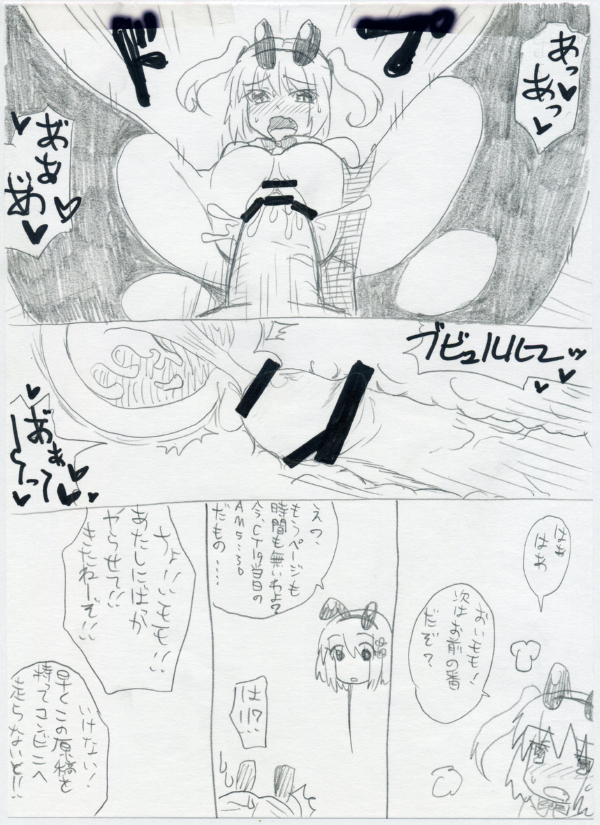 ドプ
あっ♥
あっ♥
あああ
♥
ブビュルルルーッ
♥♥
はぁ
はぁ
おいもも!
次はお前の番
だぞ?
えっ、
もうページも
時間も無いわよ?
今、CT19当日の
AM5:30
だもの‥‥
は!!?
ちょ!!もも!!
あたしにばっか
ヤらせて!!
きたねーぞ!!
いけない!
早くこの原稿を
持ってコンビニへ
走らないと!!